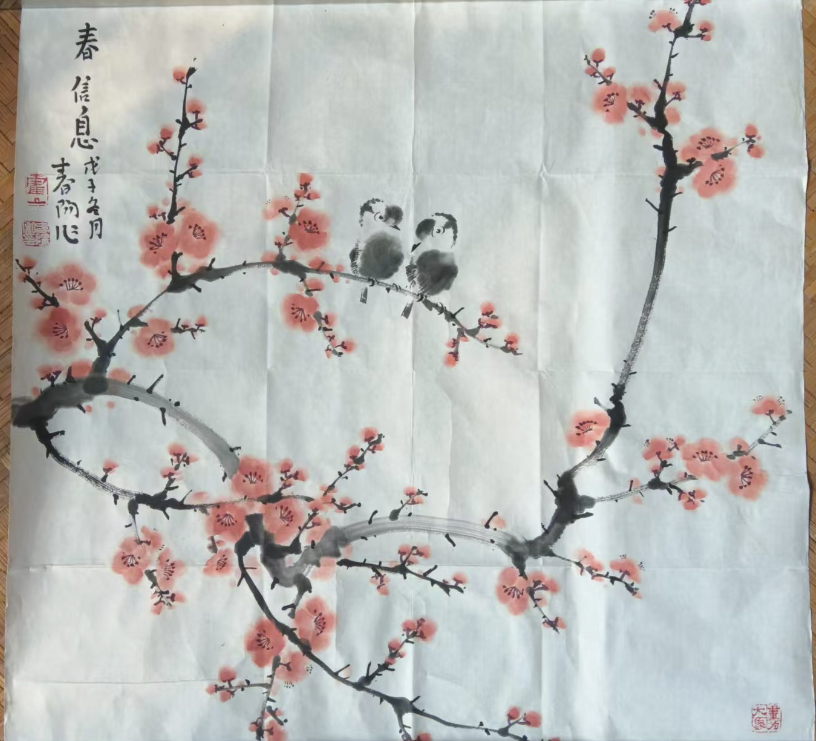 春信息
戊子冬月
春阳作